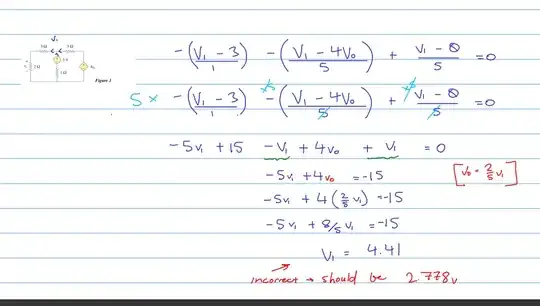 V₁
3 Ω
5 Ω
2 Ω
3 V
1 Ω
Figure 1
-(V₁ - 3)/1 -(V₁ - 4V₀)/5 + (V₁ - 0)/5 = 0
5 × -(V₁ - 3)/1 ×5 -(V₁ - 4V₀)/5 + ×5 (V₁ - 0)/5 = 0
-5V₁ + 15 - V₁ + 4V₀ + V₁ = 0
-5V₁ + 4V₀ = -15 [V₀ = 2/5 V₁]
-5V₁ + 4(2/5 V₁) = -15
-5V₁ + 8/5 V₁ = -15
V₁ = 4.41
incorrect → should be 2.778v